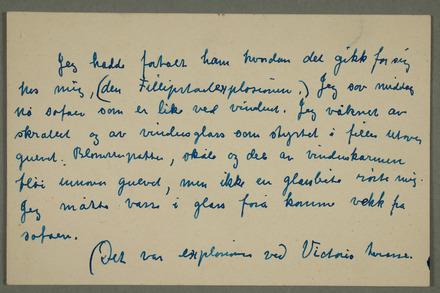 Jeg hadde fortalt ham hvordan det gikk for sig
hos mig, (den Fillipstadexplosionen.) Jeg sov middag
på sofaen som er like ved vinduet. Jeg våknet av
skrallet og av vindusglass som styrtet i filler utover
gulvet. Blomsterpotter, skåle og del av vinduskarmen
fløi innover gulvet, men ikke en glassbite rørte mig.
Jeg måtte vasse i glass forå komme vekk fra
sofaen.
(Det var explosionen ved Victoria terrasse.